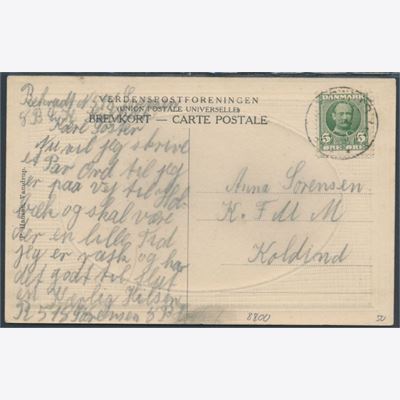 VERDENSPOSTFORENINGEN
(UNION POSTALE UNIVERSELLE)
BREVKORT — CARTE POSTALE
DANMARK
5 5
ØRE ØRE
Kære Søster
Nu vil jeg skrive
et Par Ord til jeg
er paa vej til
og skal være
der en lille Tid
jeg er rask og har
det godt til slut
en Kærlig Hilsen
Sørensen
Anna Sørensen
K. F. U. M
Koldind
8800
50